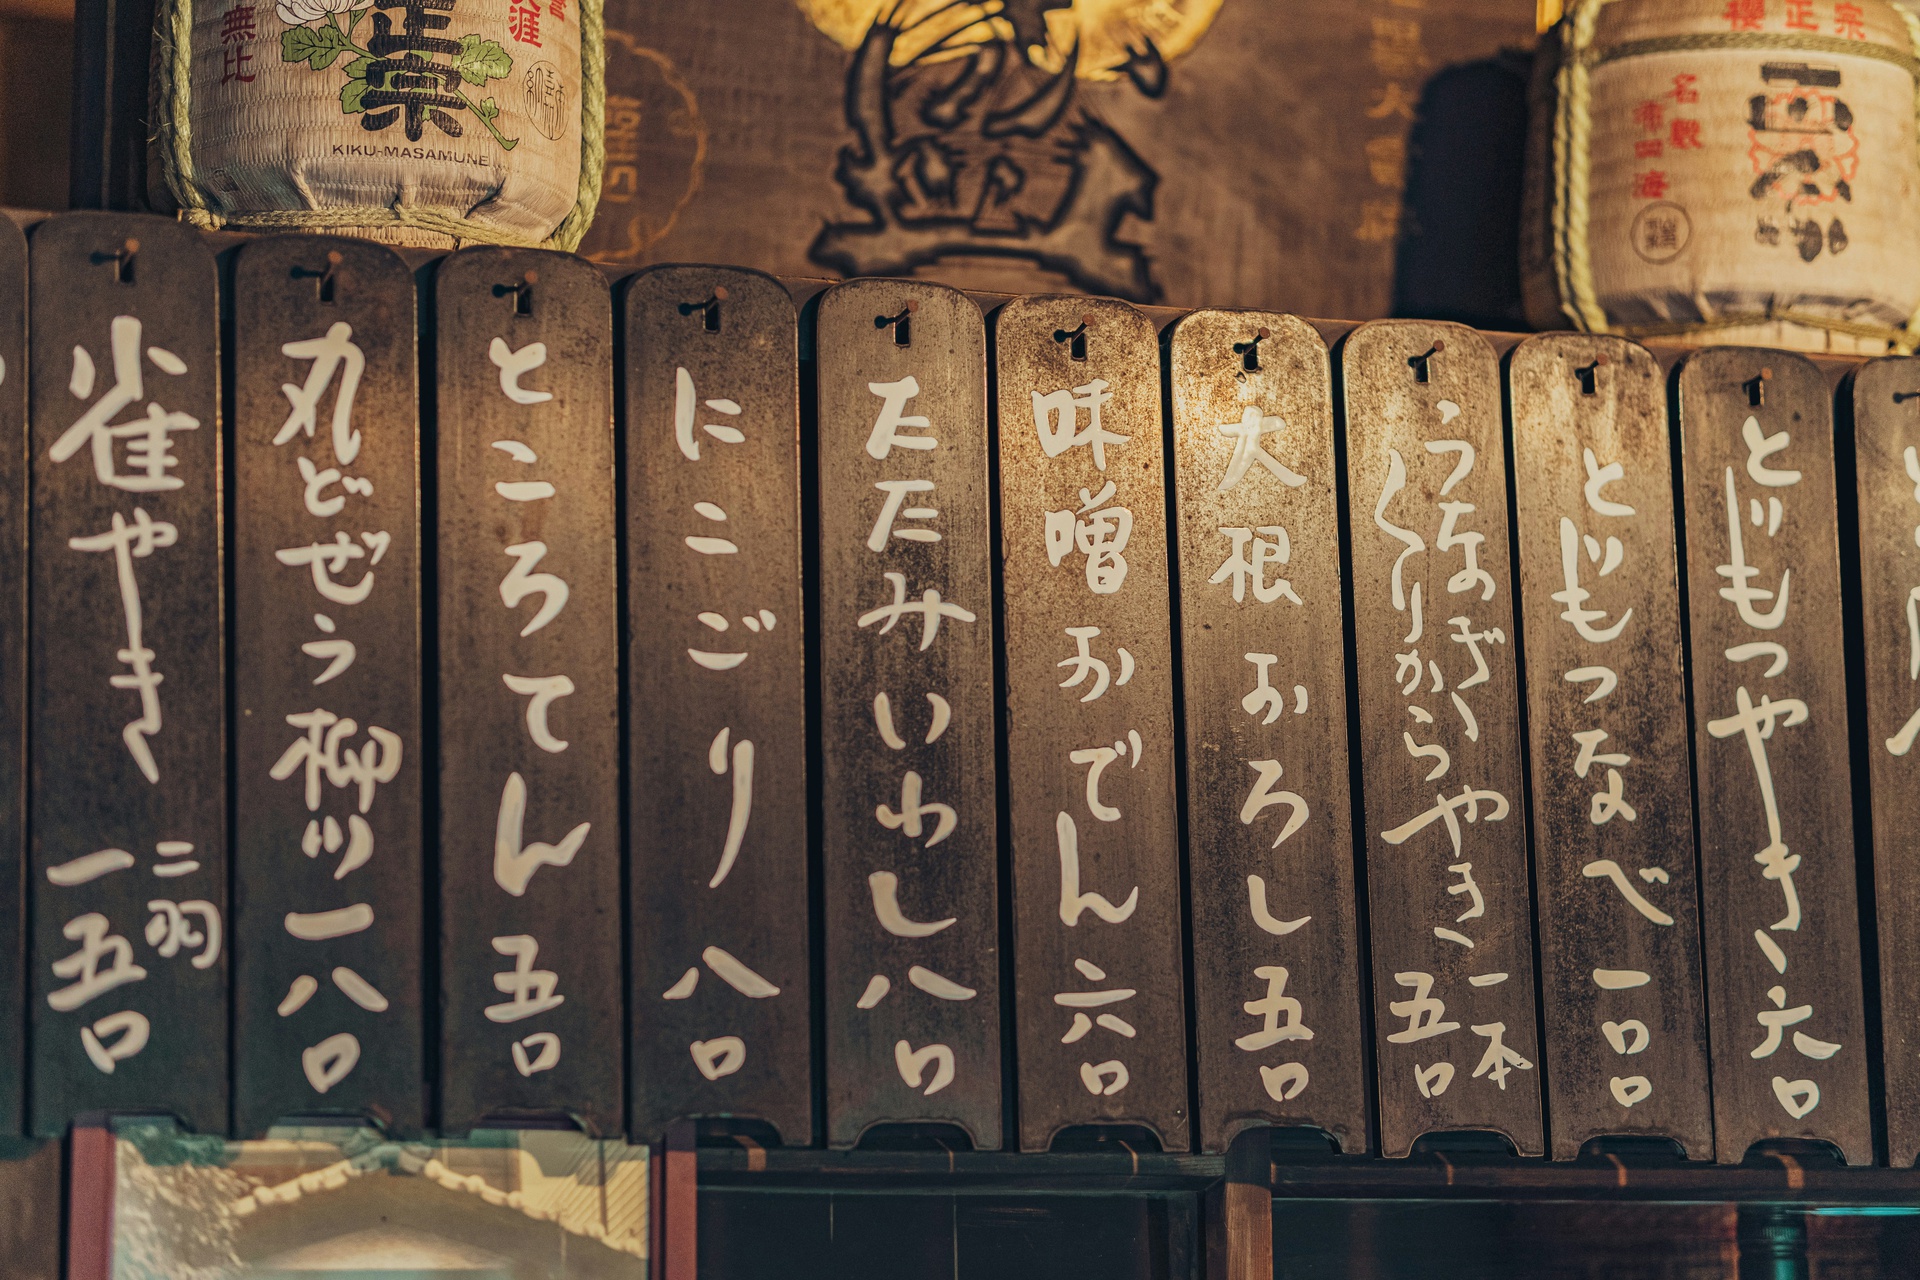 無比
正宗
KIKU-MASAMUNE
櫻正宗
名醸
とじもつやき、六口
とじもつなべ 一口口
うなぎ、くりからやき、一本 五口
大根おろし五口
味噌おでん六口
たたみいわし八口
にこごり 八口
ところてん 五口
丸どぜう柳川一八口
雀やき 二羽 一五口